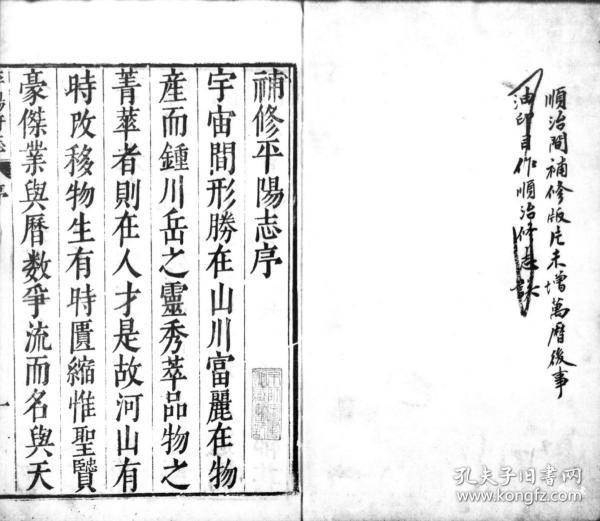 順治間補修版片未增萬曆後事
油印目作順治修志誤
補修平陽志序
宇宙間形勝在山川富麗在物
産而鍾川岳之靈秀萃品物之
菁華者則在人才是故河山有
時改移物生有時匱縮惟聖賢
豪傑業與曆数爭流而名與天
平陽府志 序 一
孔夫子旧书网
www.kongfz.com